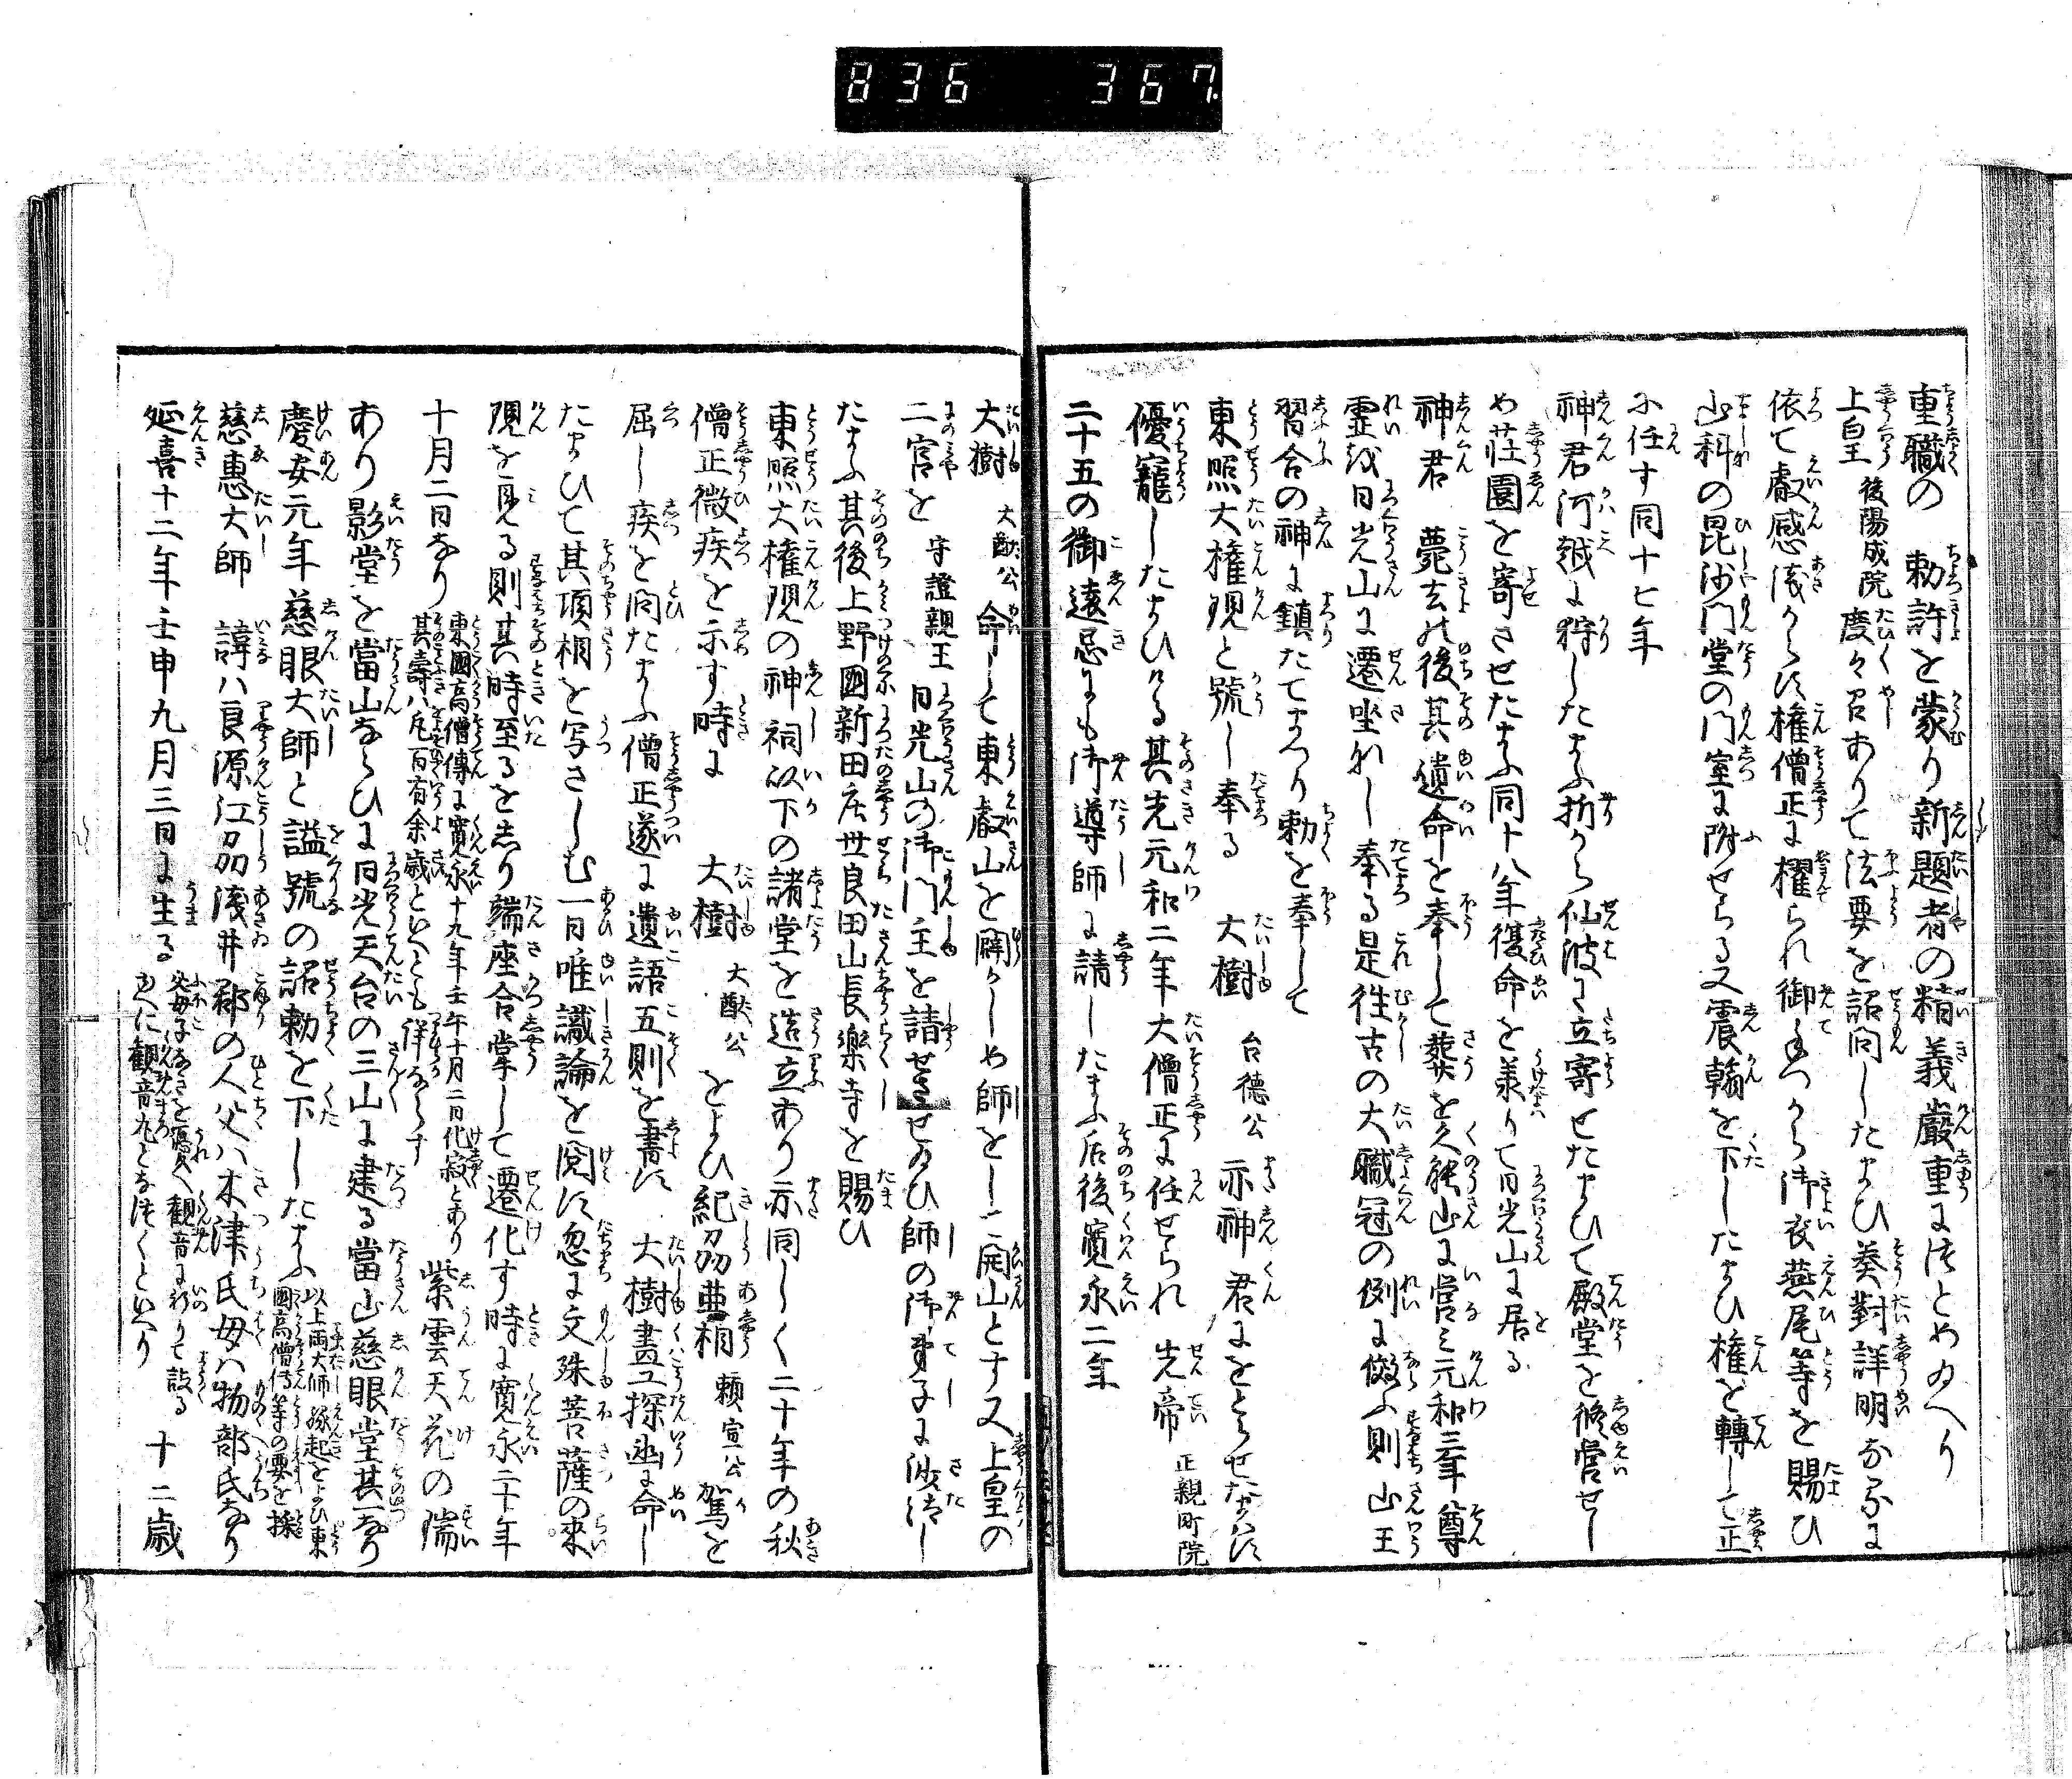 836 367
重職の 勅許を蒙り新題者の精義嚴重に
上皇 後陽成院 度々召ありて法要を詔問したまひ奏對詳明なるに
依て叡感浅からす権僧正に櫂られ御手つから御衣燕尾等を賜ひ
山科の毘沙門堂の門室に附せらる又震翰を下したまひ権を轉して正
に任す同十七年
神君河越に狩したまふ折から仙波に立寄せたまひて殿堂を修営せし
め荘園を寄させたまふ同十八年復命を羕りて日光山に居る
神君 薨去の後其遺命を奉して葬を久能山に営み元和三年尊
霊を日光山に遷坐なし奉る是往古の大職冠の例に倣ふ則山王
習合の神に鎮たてまつり勅を奉して
東照大権現と號し奉る 大樹 台徳公 亦神君にをとらせたまはす
優寵したまひける其先元和二年大僧正に任せられ 先帝 正親町院
二十五の御遠忌にも御導師に請したまふ后後寛永二年
大樹 大猷公 命して東叡山を闢かしめ師をして開山とす又上皇の
二宮を 守證親王 日光山の御門主を請せさせ給ひ師の御弟子に沙汰し
たまふ其後上野國新田庄世良田山長楽寺を賜ひ
東照大権現の神祠以下の諸堂を造立あり亦同しく二十年の秋
僧正微疾を示す時に 大樹 大猷公 をよひ紀刕亜相 頼宣公 駕を
屈し疾を問たまふ僧正遂に遺語五則を書す 大樹畫工探幽に命し
たまひて其頂相を写さしむ一日唯識論を閲す忽に文殊菩薩の来
現を見る則其時至るをしり端座合掌して遷化す時に寛永二十年
十月二日なり 東國高僧傳に寛永十九年壬午十月二日化寂とあり
其壽ハ凡百有余歳といへとも詳ならす 紫雲天花の瑞
あり影堂を當山ならひに日光天台の三山に建る當山慈眼堂其一なり
慶安元年慈眼大師と謚號の詔勅を下したまふ 以上両大師縁起をよひ東
國高僧傳等の要を採
慈惠大師 諱ハ良源江刕浅井郡の人父ハ木津氏母ハ物部氏なり
延喜十二年壬申九月三日に生る 父母子なきを憂へ観音に祈りて設る
ゆへに観音丸となつくといへり 十二歳